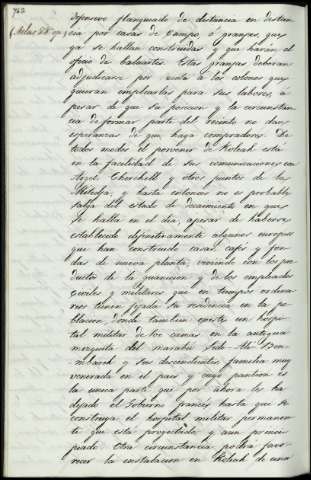 762
defensivo flanqueado de distancia en distan
(Atlas 28 cia por casas de campo, ó granjas, que
ya se hallan construidas y que harán el
oficio de baluartes. Estas granjas deberán
adjudicarse por venta á los colonos que
quieran emplearlas para sus labores, á
pesar de que su posicion y la circunstan
cia de formar parte del recinto no dan
esperanzas de que haya compradores. De
todos modos el porvenir de Koleah está
en la facilidad de sus comunicaciones con
Argel, Cherchell y otros puntos de la
Metidja, y hasta entonces no es probable
salga del estado de decaimiento en que
se halla en el dia, apesar de haberse
establecido definitivamente algunos europeos
que han construido casas, cafés y fon
das de nueva planta, viviendo con los pro
ductos de la guarnicion y de los empleados
civiles y militares que en tiempos ordina
rios tienen fijada su residencia en la po
blacion, donde tambien existe un hospi
tal militar de 100 camas en la antigua
mezquita del marabú Sidi-Ali-Ben
Mbarech y sus descendientes, familia muy
venerada en el pais y cuyo panteon es
la unica parte que por ahora les ha
dejado el Gobierno francés hasta que se
construya el hospital militar permanen
te que está proyectado y aun princi
piado. Otra circunstancia podrá favo
recer la instalacion en Koleah de una